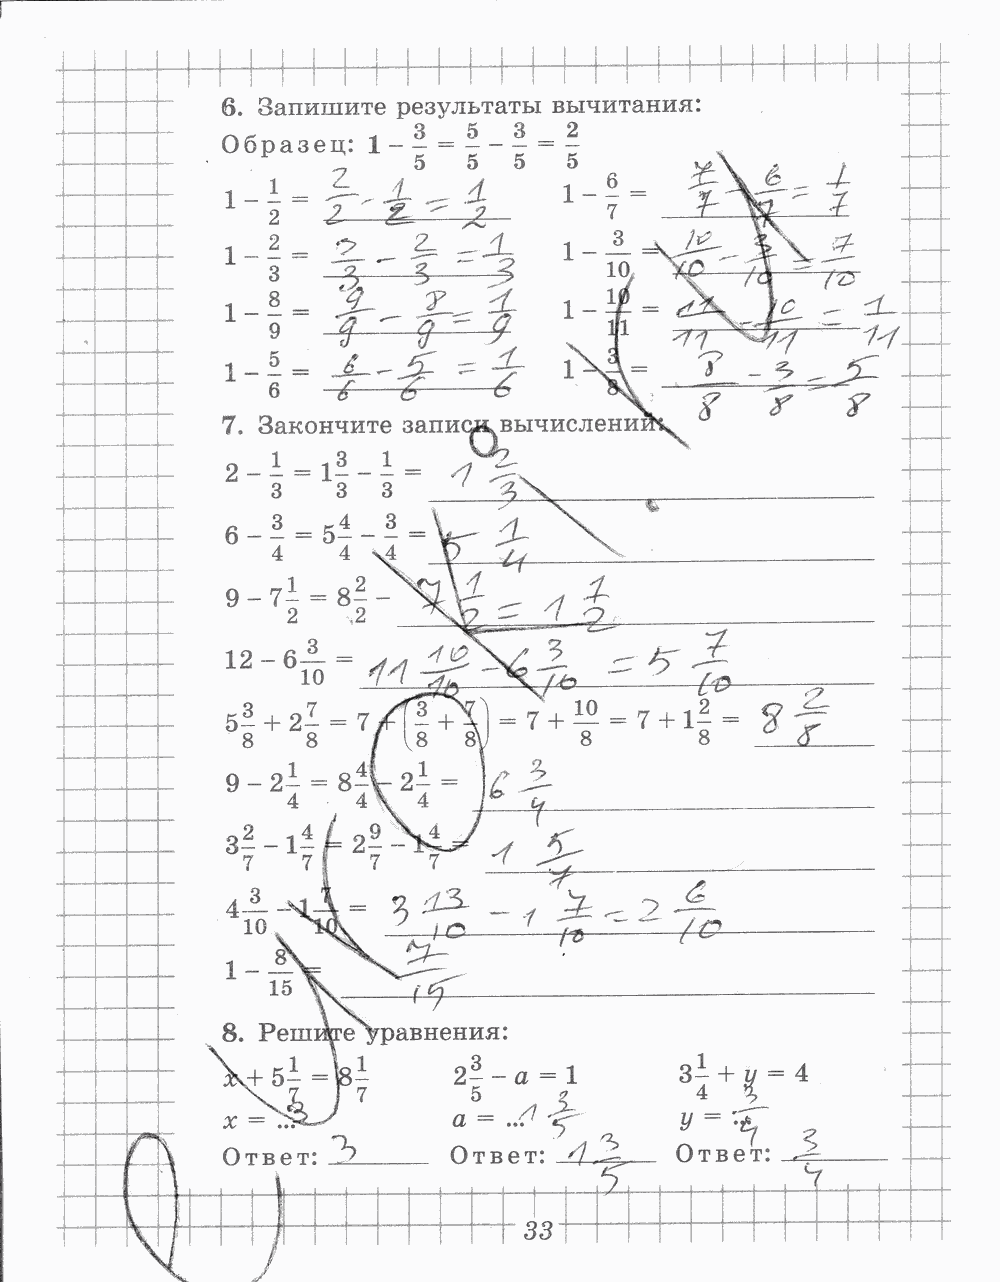 6. Запишите результаты вычитания:
Образец: 1 − 3/5 = 5/5 − 3/5 = 2/5
1 − 1/2 = 2/2 - 1/2 = 1/2
1 − 6/7 = 7/7 - 6/7 = 1/7
1 − 2/3 = 3/3 - 2/3 = 1/3
1 − 3/10 = 10/10 - 3/10 = 7/10
1 − 8/9 = 9/9 - 8/9 = 1/9
1 − 10/11 = 11/11 - 10/11 = 1/11
1 − 5/6 = 6/6 - 5/6 = 1/6
1 − 3/8 = 8/8 - 3/8 = 5/8
7. Закончите записи вычислений:
2 − 1/3 = 1 3/3 − 1/3 = 1 2/3
6 − 3/4 = 5 4/4 − 3/4 = 5 1/4
9 − 7 1/2 = 8 2/2 − 7 1/2 = 1 1/2
12 − 6 3/10 = 11 10/10 - 6 3/10 = 5 7/10
5 3/8 + 2 7/8 = 7 + (3/8 + 7/8) = 7 + 10/8 = 7 + 1 2/8 = 8 2/8
9 − 2 1/4 = 8 4/4 − 2 1/4 = 6 3/4
3 2/7 − 1 4/7 = 2 9/7 − 1 4/7 = 1 5/7
4 3/10 − 1 7/10 = 3 13/10 - 1 7/10 = 2 6/10
1 − 8/15 = 7/15
8. Решите уравнения:
x + 5 1/7 = 8 1/7
2 3/5 − a = 1
3 1/4 + y = 4
x = ...3
a = ...1 3/5
y = ... 3/4
Ответ: 3
Ответ: 1 3/5
Ответ: 3/4
33